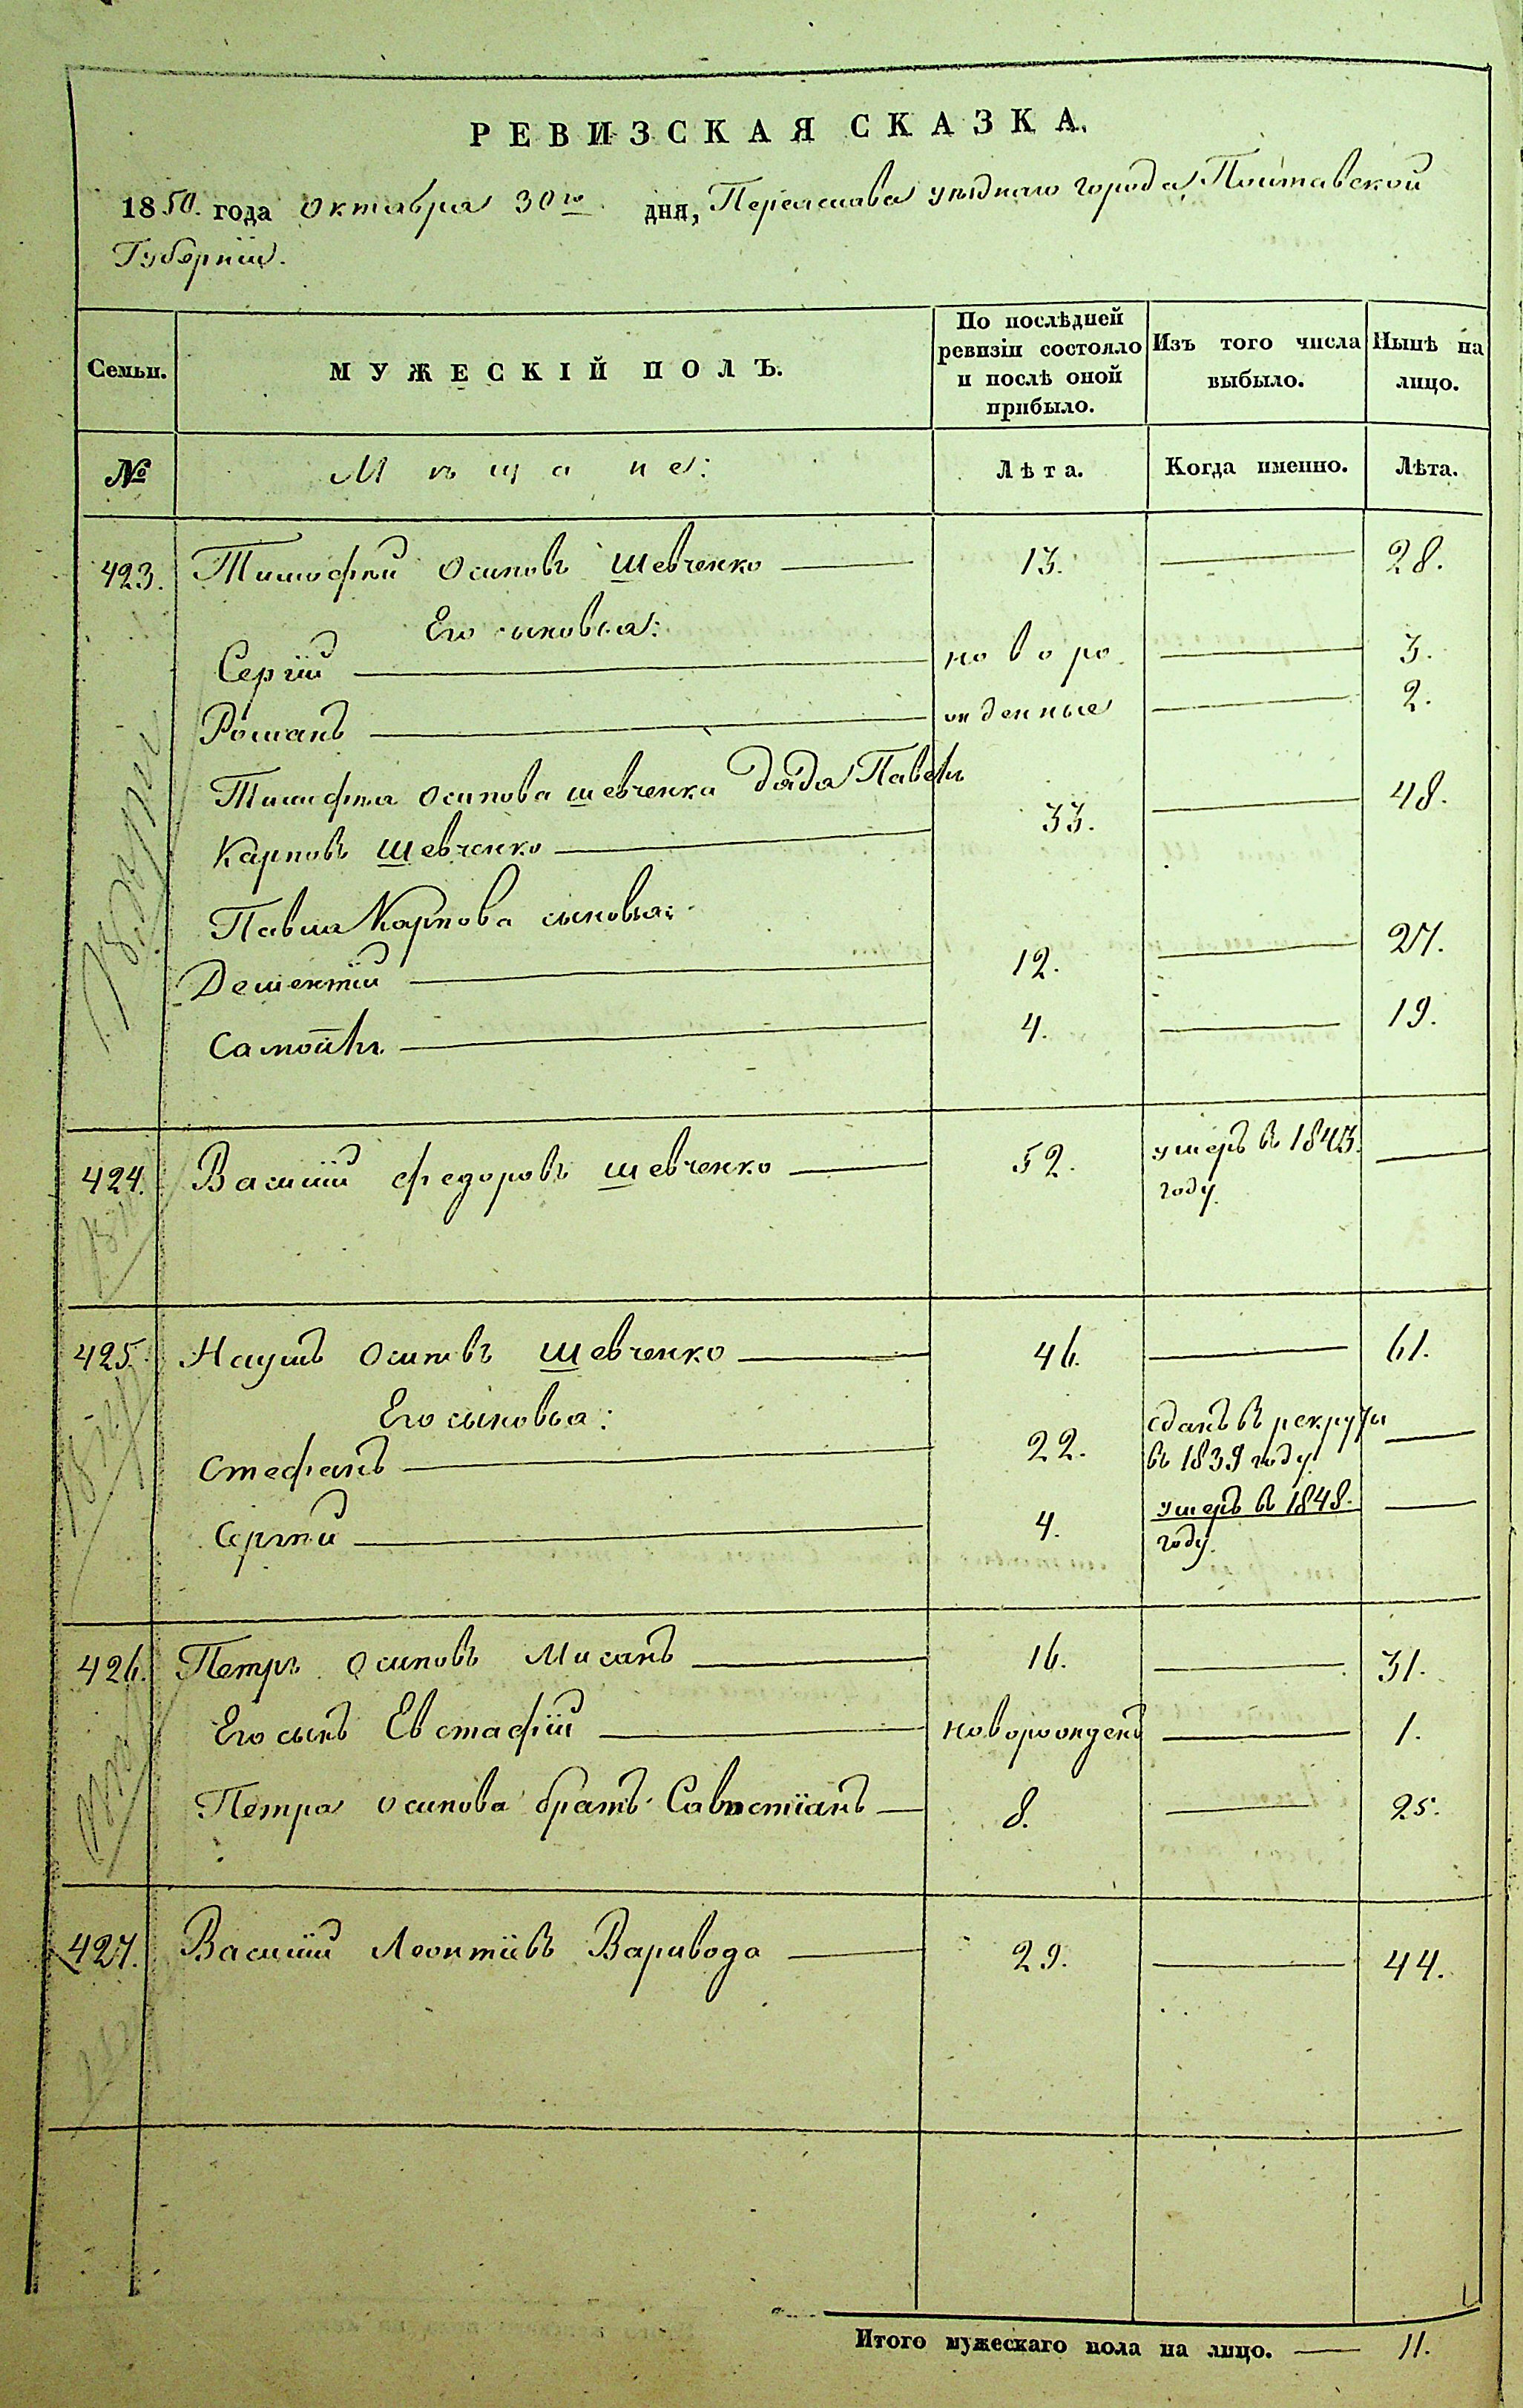 РЕВИЗСКАЯ СКАЗКА.
1850. года Октября 30го дня, Переяслава уѣзднаго города, Полтавской
Губерніи.
Семьи. МУЖЕСКІЙ ПОЛЪ. По послѣдней ревизіи состояло и послѣ оной прибыло. Изъ того числа выбыло. Нынѣ на лицо.
№ Мѣщане: Лѣта. Когда именно. Лѣта.
423. Тимофѣй Осиповъ Шевченко 13. 28.
Его сыновья:
Сергій новоро 3.
Романъ жденные 2.
Тимофѣя Осипова Шевченка дядя Павелъ
Карповъ Шевченко 33. 48.
Павла Карпова сыновья:
Дементій 12. 27.
Самойлъ 4. 19.
424. Василій Федоровъ Шевченко 52. умеръ въ 1843.
году.
425. Наумъ Осиповъ Шевченко 46. 61.
Его сыновья:
Стефанъ 22. сданъ въ рекруты
въ 1839 году
Сергѣй 4. умеръ въ 1848.
году.
426. Петръ Осиповъ Мисанъ 16. 31.
Его сынъ Евстафій новорожденъ 1.
Петра Осипова братъ Савастіанъ 8. 25.
427. Василій Леонтіевъ Варивода 29. 44.
Итого мужескаго пола на лицо. 11.